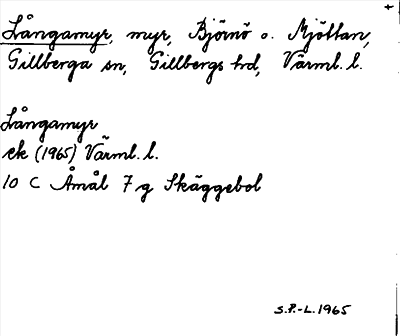 Långamyr, myr, Björnö o. Mjöttan,
Gillberga sn, Gillbergs hd, Värml. l.
Långamyr
ek (1965) Värml. l.
10 C Åmål 7 g Skäggebol
S.P.-L. 1965